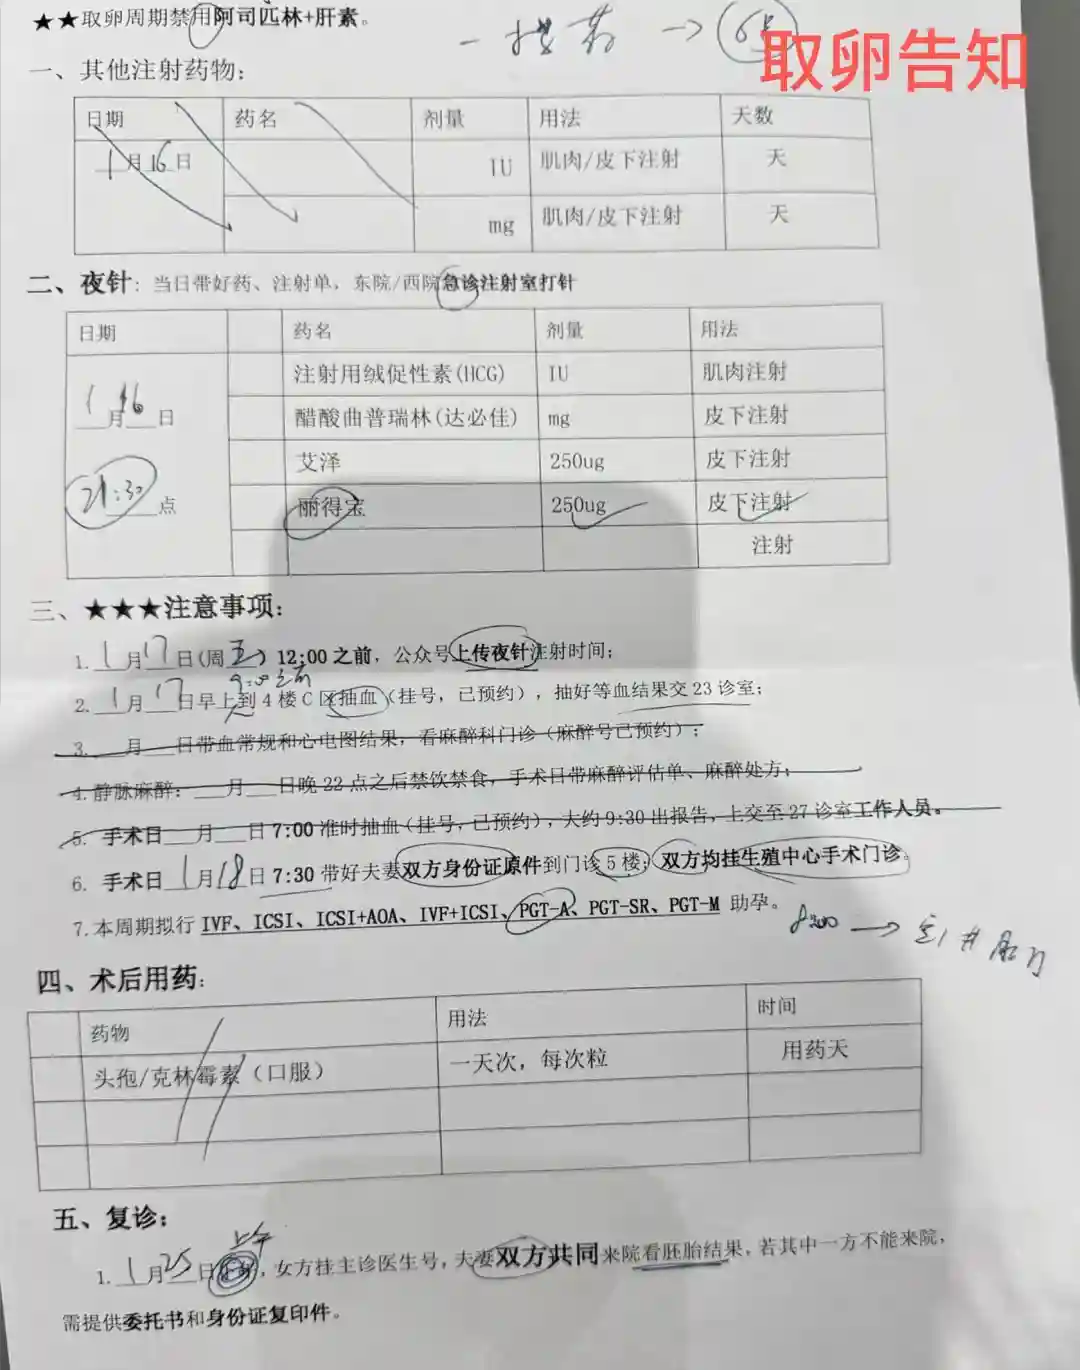 ★★取卵周期禁用阿司匹林+肝素。
取卵告知
一、其他注射药物：
日期 药名 剂量 用法 天数
1月16日 IU 肌肉/皮下注射 天
mg 肌肉/皮下注射 天
二、夜针：当日带好药、注射单，东院/西院急诊注射室打针
日期 药名 剂量 用法
注射用绒促性素(HCG) IU 肌肉注射
1月16日 醋酸曲普瑞林(达必佳) mg 皮下注射
艾泽 250ug 皮下注射
21:30点 丽得宝 250ug 皮下注射
注射
三、★★★注意事项：
1. 1月17日(周五) 12:00之前，公众号上传夜针注射时间；
9:00之前
2. 1月17日早上到4楼C区抽血（挂号，已预约），抽好等血结果交23诊室；
3. 月 日带血常规和心电图结果，看麻醉科门诊（麻醉号已预约）；
4. 静脉麻醉： 月 日晚22点之后禁饮禁食，手术日带麻醉评估单、麻醉处方；
5. 手术日 月 日7:00准时抽血（挂号，已预约），大约9:30出报告，上交至27诊室工作人员。
6. 手术日1月18日7:30带好夫妻双方身份证原件到门诊5楼；双方均挂生殖中心手术门诊。
7. 本周期拟行IVF、ICSI、ICSI+AOA、IVF+ICSI、PGT-A、PGT-SR、PGT-M助孕。
四、术后用药：
药物 用法 时间
头孢/克林霉素（口服） 一天次，每次粒 用药天
五、复诊：
上午
1. 1月25日，女方挂主诊医生号，夫妻双方共同来院看胚胎结果，若其中一方不能来院，
需提供委托书和身份证复印件。